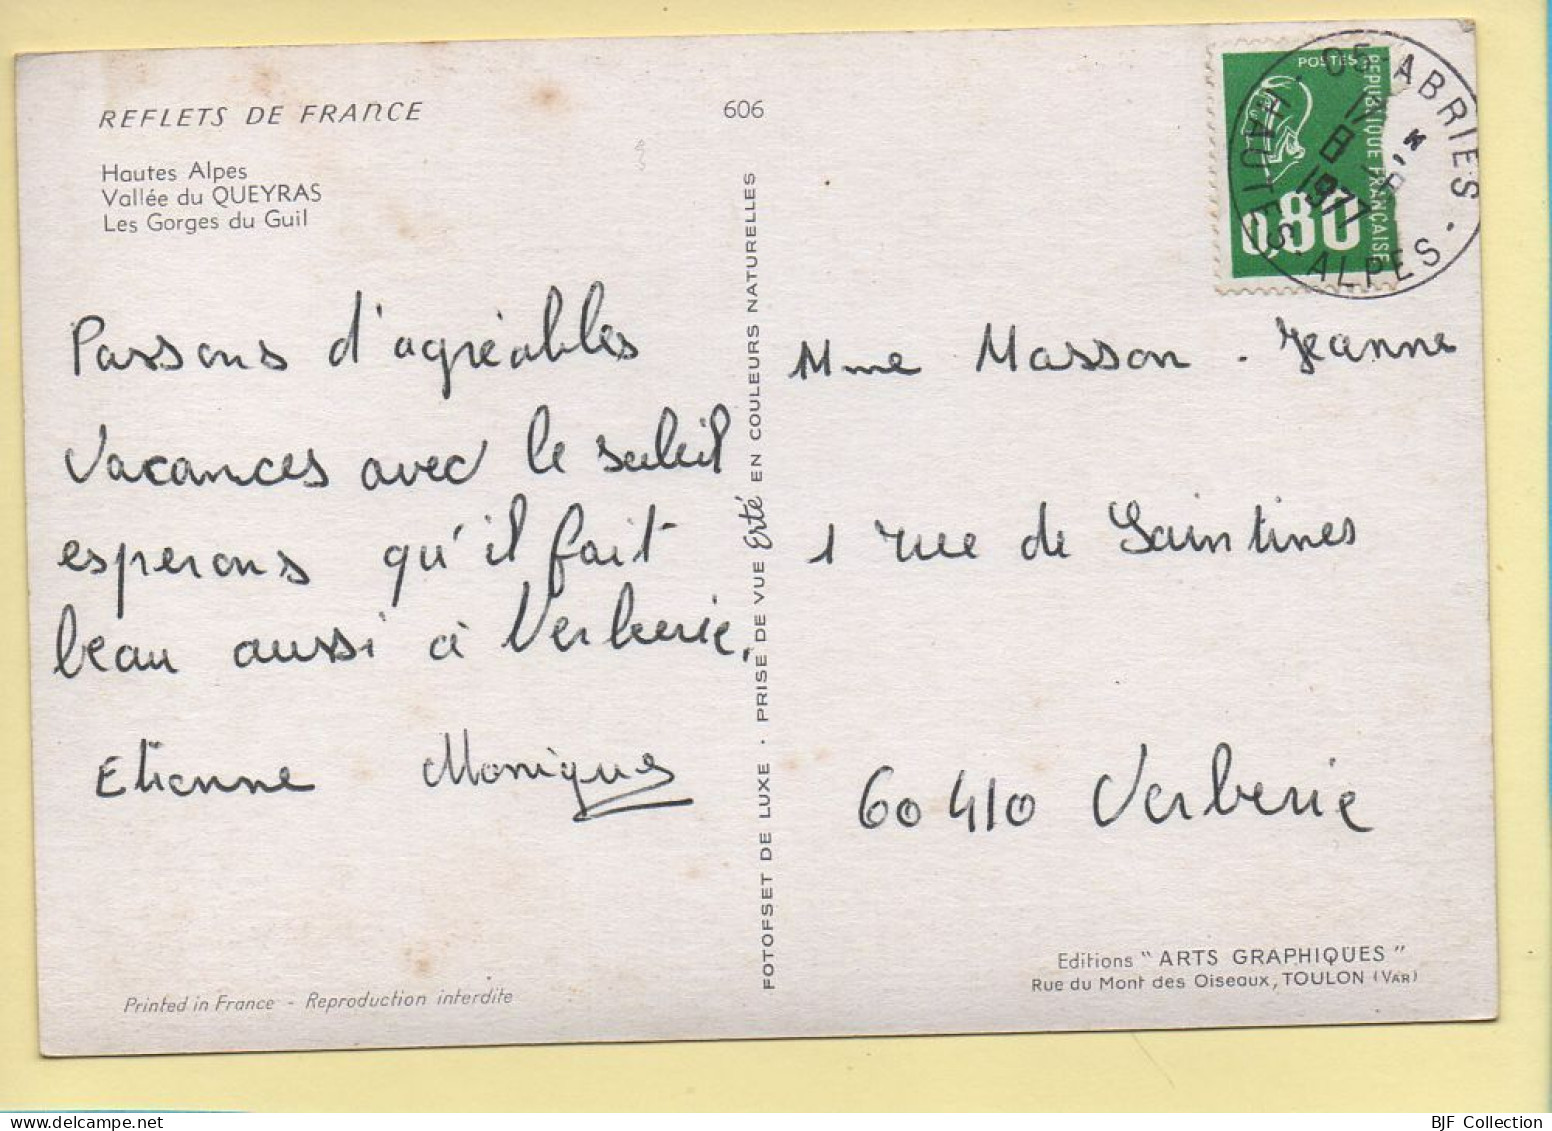 REFLETS DE FRANCE
606
Hautes Alpes
Vallée du QUEYRAS
Les Gorges du Guil
POSTES
REPUBLIQUE FRANÇAISE
0,80
05 ABRIES
1977
HAUTES-ALPES
Passons d'agréables
vacances avec le soleil
esperons qu'il fait
beau aussi à Verberie.
Etienne Monique
FOTOFSET DE LUXE • PRISE DE VUE Erté EN COULEURS NATURELLES
Mme Masson - Jeanne
1 rue de Saintines
60410 Verberie
Editions "ARTS GRAPHIQUES"
Rue du Mont des Oiseaux, TOULON (VAR)
Printed in France - Reproduction interdite
BJF Collection